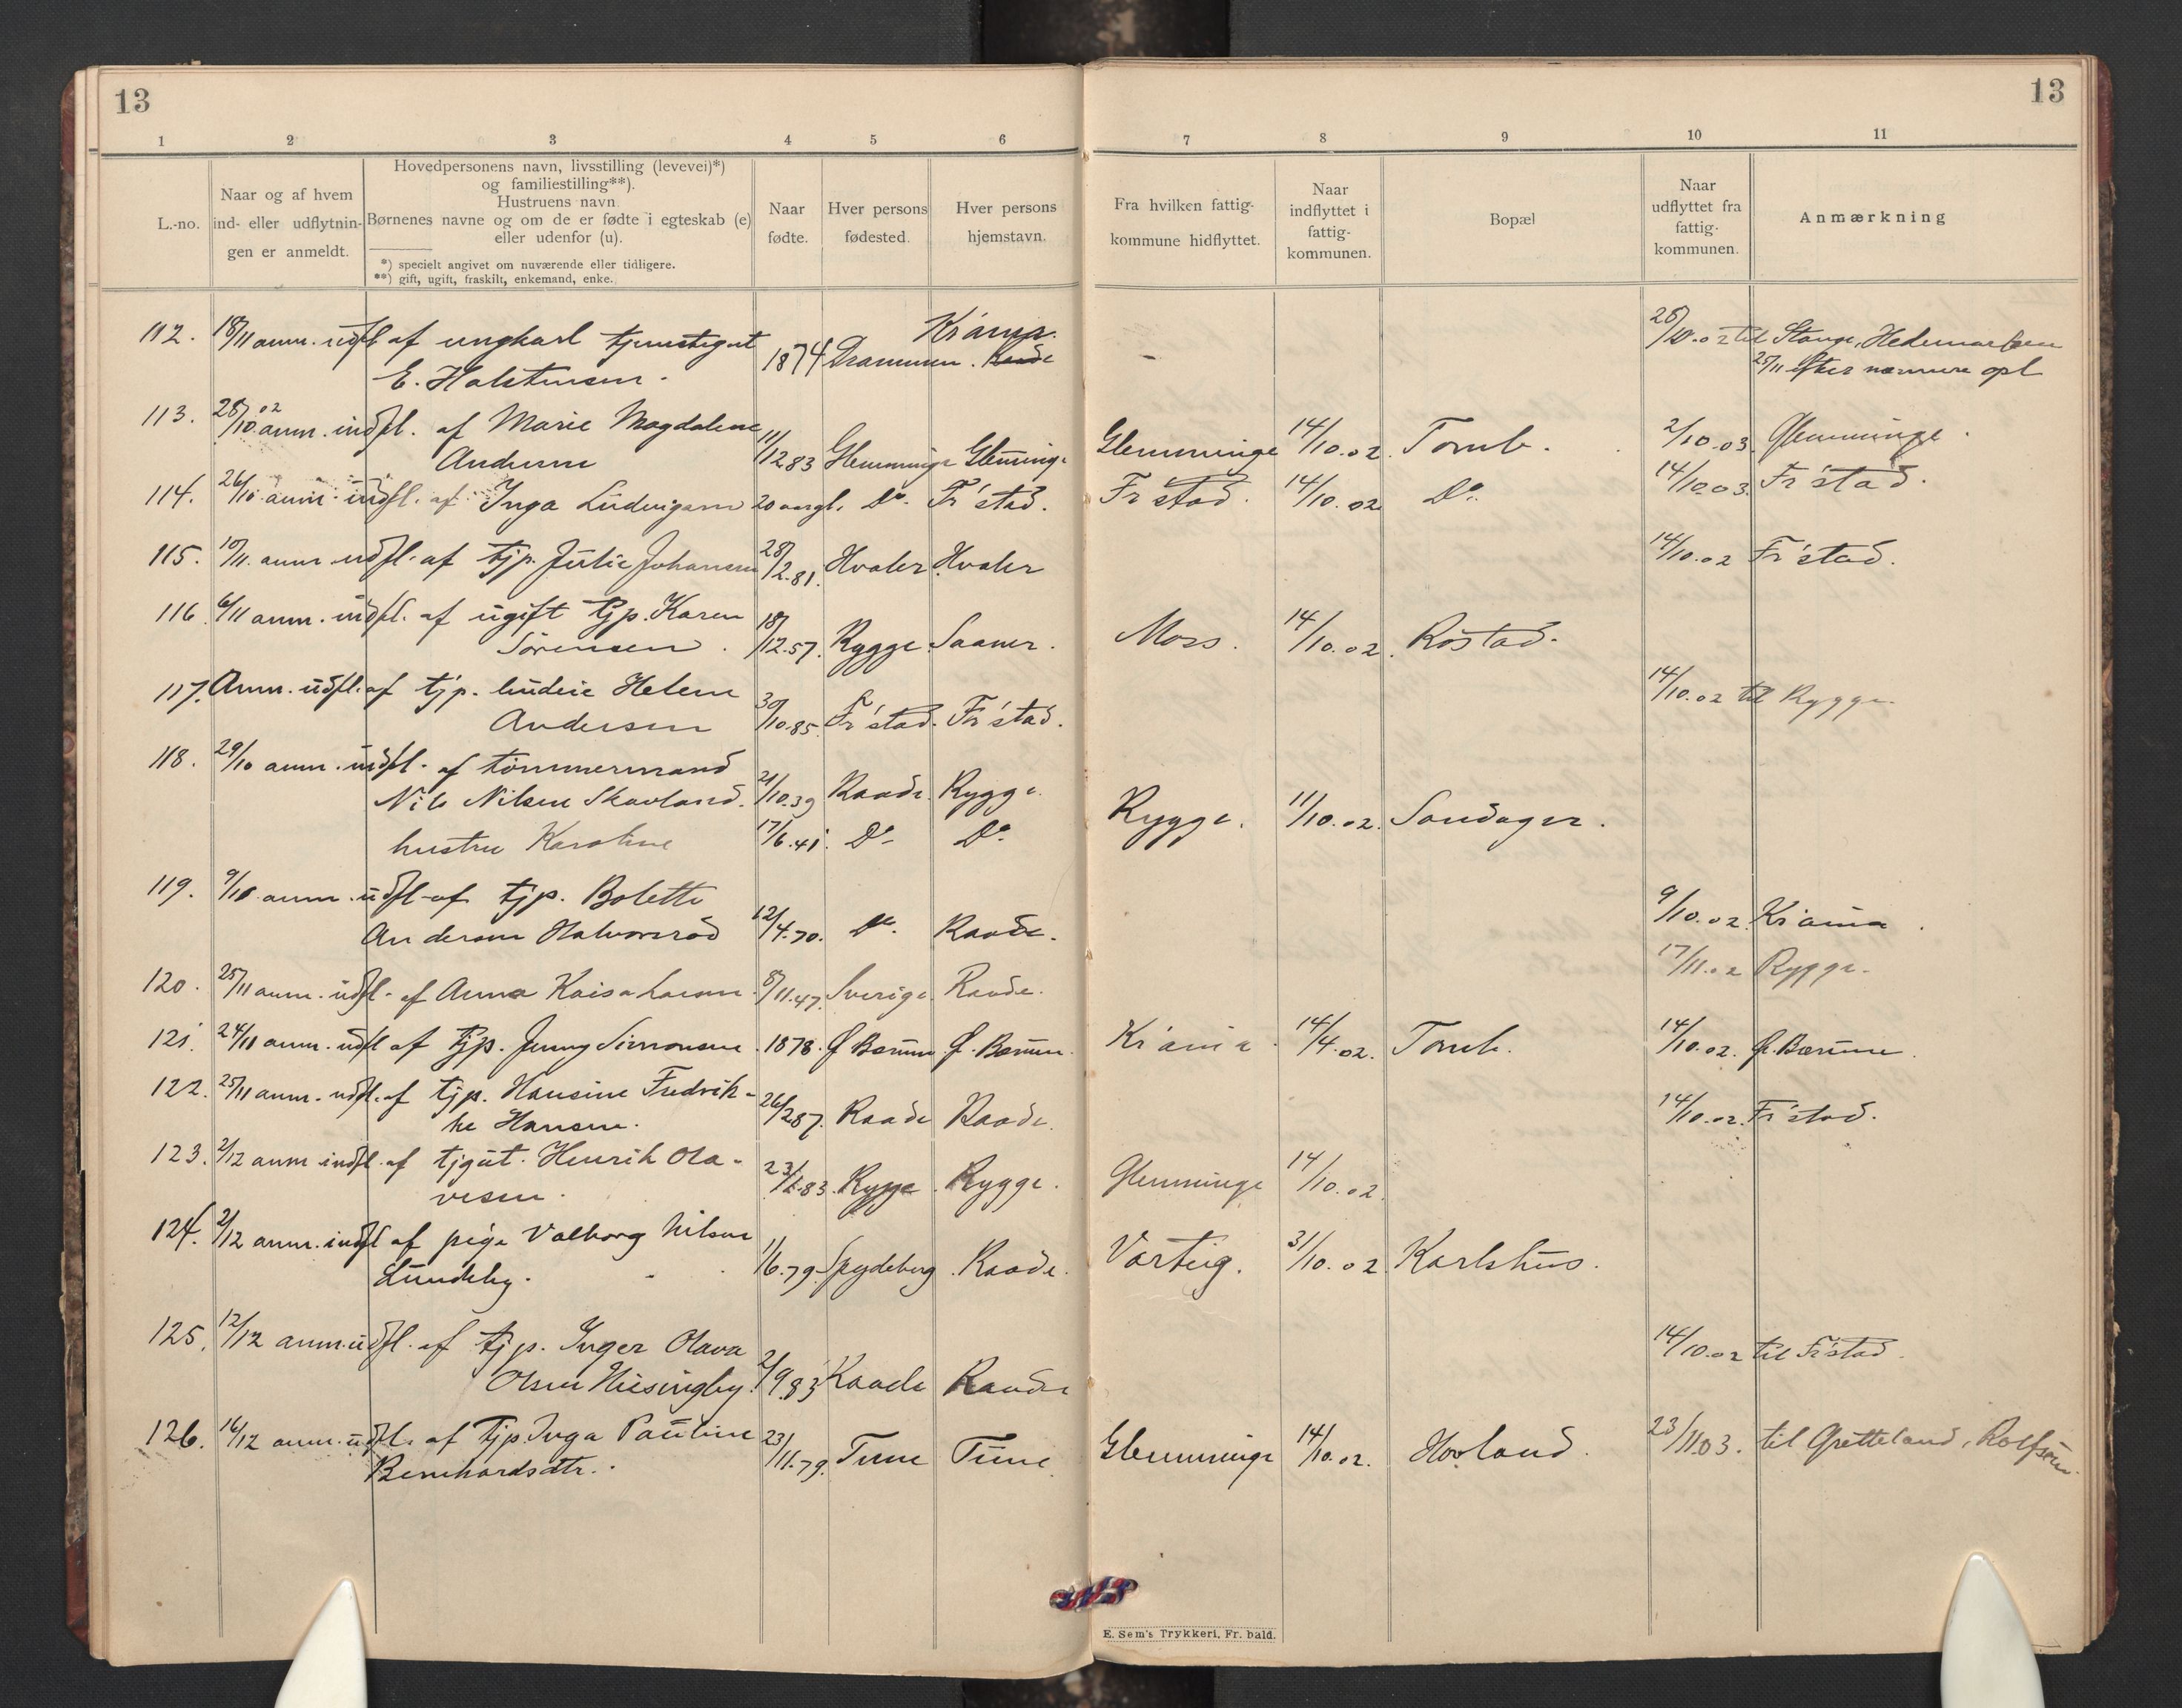 13
13
1 2 3 4 5 6 7 8 9 10 11
L.-no.
Naar og af hvem
ind- eller udflytnin-
gen er anmeldt.
Hovedpersonens navn, livsstilling (levevei)*)
og familiestilling**).
Hustruens navn
Børnenes navne og om de er fødte i egteskab (e)
eller udenfor (u).
*) specielt angivet om nuværende eller tidligere.
**) gift, ugift, fraskilt, enkemand, enke.
Naar
fødte.
Hver persons
fødested.
Hver persons
hjemstavn.
Fra hvilken fattig-
kommune hidflyttet.
Naar
indflyttet i
fattig-
kommunen.
Bopæl
Naar
udflyttet fra
fattig-
kommunen.
Anmærkning
112. 18/11 anm. udfl af ungkarl tjenstegut Kr'ania. 28/10.02 til Stange, Hedemarken
E. Halstensen. 1874 Drammen. Raade 25/11 efter nærmere opl
113. 28/10 02 anm. indfl. af Marie Magdalene
Andersen 11/12 83 Glemminge Glemminge Glemminge 14/10.02. Tomb. 2/10.03. Glemminge.
114. 26/10 anm. indfl. af Inga Ludvigsen 20 aar gl. Do. Fr'stad. Fr'stad. 14/10.02 Do. 14/10.03. Fr'stad.
115. 10/11. anm udfl. af tjp. Julie Johansen 28/2.81. Hvaler Hvaler 14/10.02 Fr'stad.
116. 6/11 anm. indfl. af ugift tjp. Karen
Sørensen. 18/12.57. Rygge Saaner. Moss. 14/10.02. Rostad.
117. Anm. udfl. af tjp. Helene
Andersen 30/10.85. Fr'stad. Fr'stad. 14/10.02 til Rygge.
118. 29/10 anm. indfl. af tømmermand
Nils Nilsen Skovland. 21/10.39 Raade. Rygge. Rygge. 11/10.02. Sandager.
hustru Karoline 17/6.41. Do Do.
119. 9/10 anm. udfl. af tjp. Bolette
Andersen Halvorsrød 12/4.70. Do. Raade. 9/10.02. Kr'ania.
120. 25/11 anm. udfl. af Anna Kaisa Larsen. 8/11.47. Sverige. Raade. 17/11.02 Rygge.
121. 24/11 anm. udfl af tjp. Jenny Simonsen. 1878. Ø Bærum Ø. Bærum. Kr'ania. 14/4.02. Tomb. 14/10.02. Ø. Bærum.
122. 25/11 anm. udfl. af tjp. Hansine Fredrik-
ke Hansen. 26/2 87. Raade Raade. 14/10.02. Fr'stad.
123. 2/12 anm indfl. af tjgut. Henrik Ola-
vesen. 23/2.83. Rygge. Rygge. Glemminge 14/10.02.
124. 2/12 anm. indfl af pige Valborg Nilsen
Lundeby. 1/6.79. Spydeberg. Raade. Varteig. 31/10.02 Karlshus.
125. 12/12 anm. udfl. af tjp. Inger Olava
Olsen Huseingby. 2/9.83 Raade Raade 14/10.02 til Fr'stad.
126. 16/12 anm. udfl. af tjp. Inga Pauline
Bernhardsdtr. 23/11.79. Tune Tune Glemminge 14/10.02. Hovland. 23/11.03. til Gretteland, Rolfsøen.
E. Sem's Trykkeri, Fr. hald.